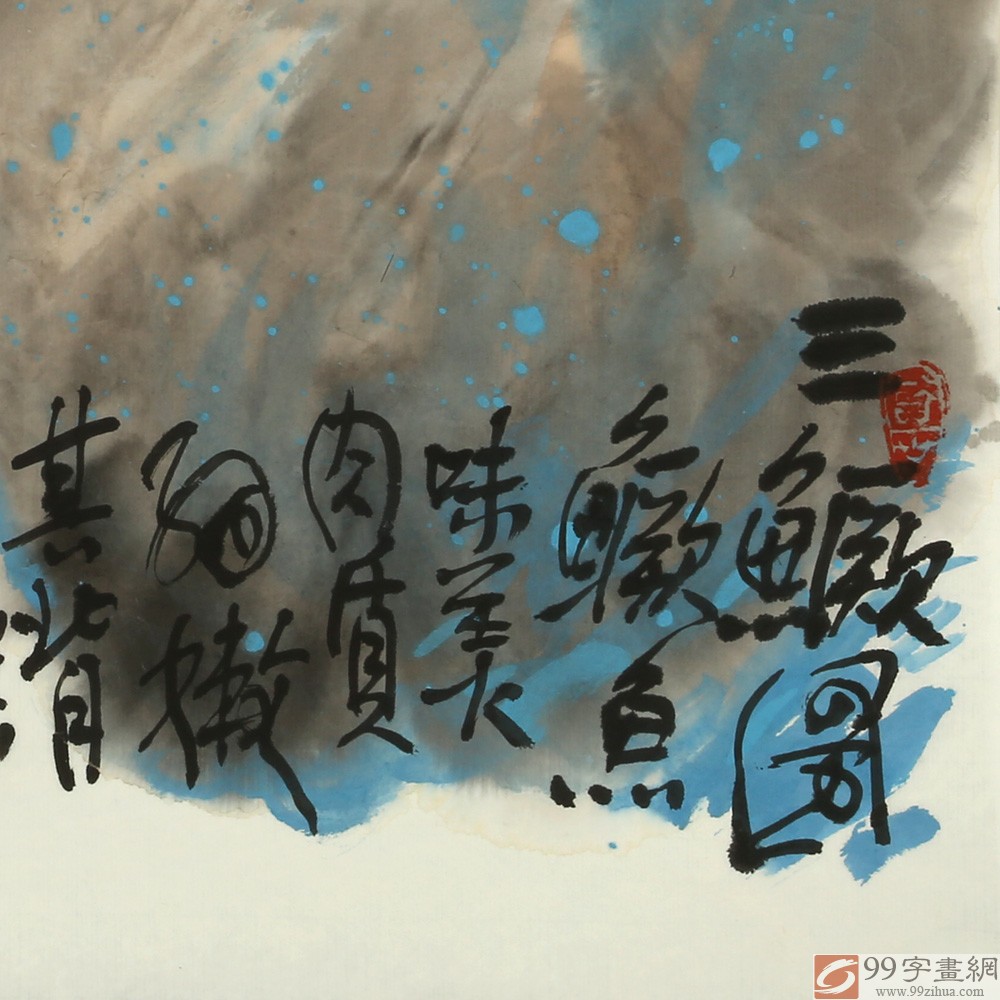 三鱖圖
鱖魚
味美
肉質
細嫩
其背
99字畫網
www.99zihua.com